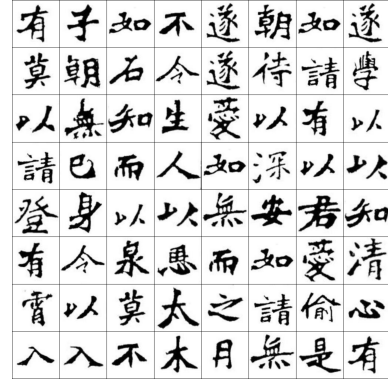 有子如不遂朝如遂
莫朝石令遂待請學
以無知生愛以有以
請巳而人如深以以
登身以以無安君知
有令泉愚而如愛清
宵以莫太之請偷心
入入不木月無是有